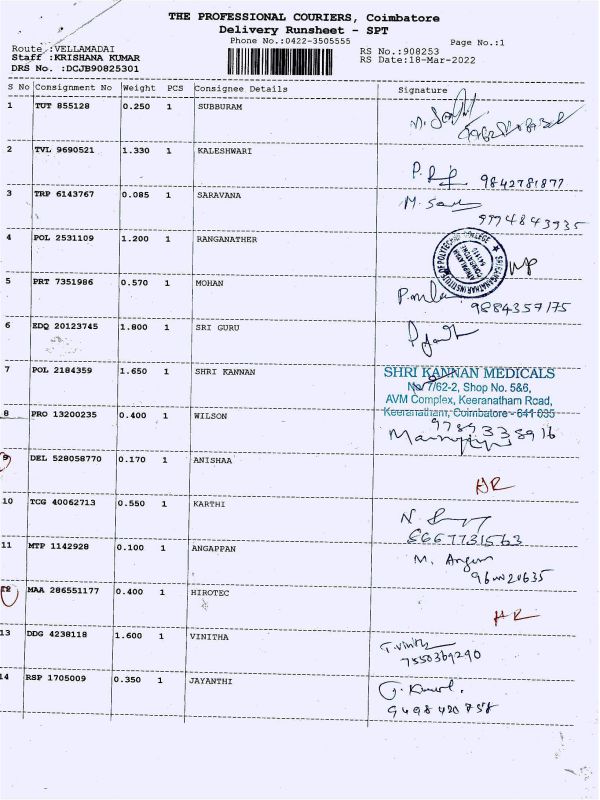 THE PROFESSIONAL COURIERS, Coimbatore
Delivery Runsheet - SPT
Phone No.:0422-3505555
Page No.:1
Route :VELLAMADAI
RS No.:908253
Staff :KRISHANA KUMAR
RS Date:18-Mar-2022
DRS No. :DCJB90825301
S No Consignment No Weight PCS Consignee Details Signature
1 TUT 855128 0.250 1 SUBBURAM
2 TVL 9690521 1.330 1 KALESHWARI
9842781877
3 TRP 6143767 0.085 1 SARAVANA
M. 
9994843935
4 POL 2531109 1.200 1 RANGANATHER
5 PRT 7351986 0.570 1 MOHAN
9884357175
6 EDQ 20123745 1.800 1 SRI GURU
7 POL 2184359 1.650 1 SHRI KANNAN
SHRI KANNAN MEDICALS
No/7/62-2, Shop No. 5&6,
AVM Complex, Keeranatham Road,
Keeranatham, Coimbatore - 641 035
8 PRO 13200235 0.400 1 WILSON
9789338916
9 DEL 528058770 0.170 1 ANISHAA
HR
10 TCG 40062713 0.550 1 KARTHI
8667731563
11 MTP 1142928 0.100 1 ANGAPPAN
12 MAA 286551177 0.400 1 HIROTEC
HR
13 DDG 4238118 1.600 1 VINITHA
T.vinitha
7550369290
14 RSP 1705009 0.350 1 JAYANTHI
9498420758